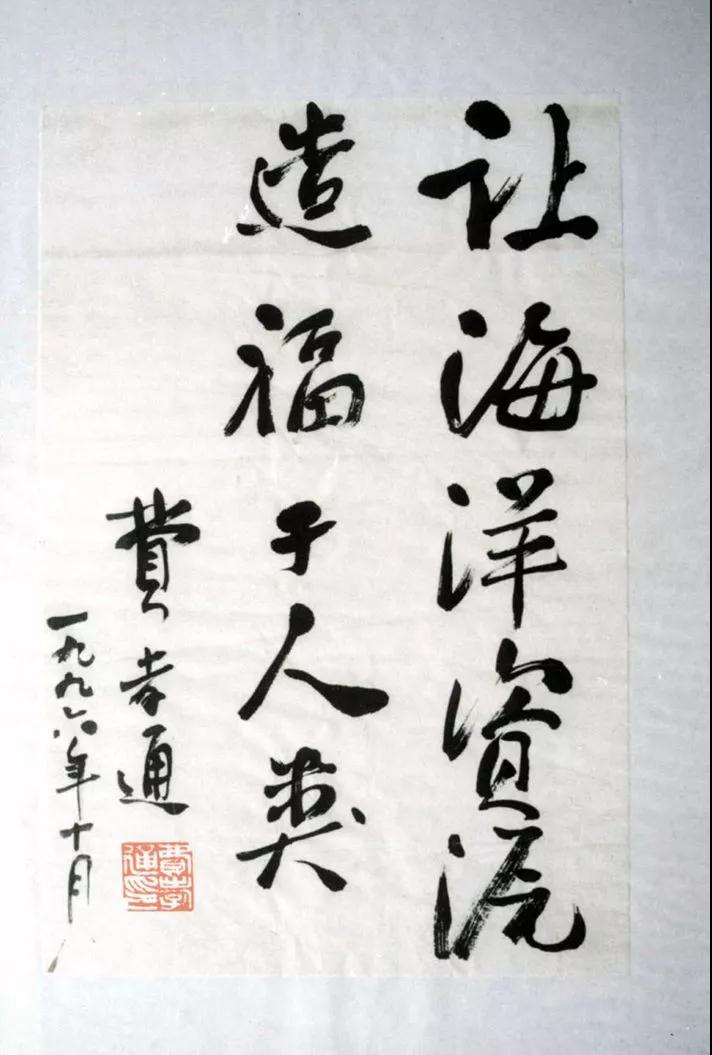 让海洋資源
造福于人类
費孝通
一九九六年十月
費孝通印